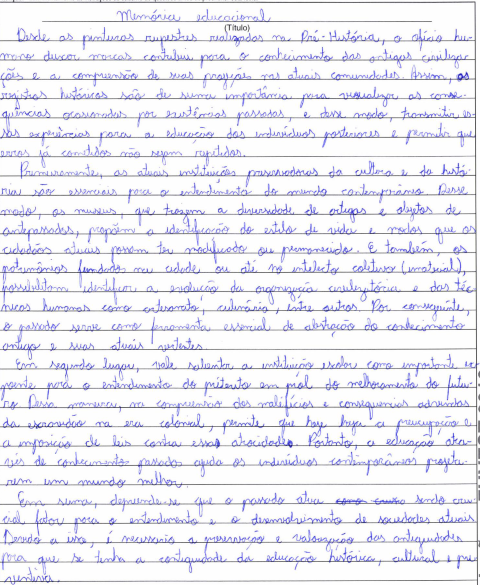 Memória educacional
(Título)
Desde as pinturas rupestres realizadas na Pré-História, o ofício hu-
mano deixar marcas contribui para o conhecimento das antigas civiliza-
ções e a compreensão de suas projeções nas atuais comunidades. Assim, os
registros históricos são de suma importância para visualizar as conse-
quências ocasionadas por existências passadas, e desse modo, transmitir es-
sas experiências para a educação dos indivíduos posteriores e permitir que
erros já cometidos não sejam repetidos.
Primeiramente, as atuais instituições preservadoras da cultura e da histó-
ria são essenciais para o entendimento do mundo contemporâneo. Desse
modo, os museus, que trazem a diversidade de artigos e objetos de
antepassados, propõem a identificação do estilo de vida e modos que os
cidadãos atuais possam ter modificado ou permanecido. E também, os
patrimônios fundados na cidade, ou até no intelecto coletivo (imaterial),
possibilitam identificar a evolução da organização civilizatória e das téc
nicas humanas como artesanato, culinária, entre outros. Por conseguinte,
o passado serve como ferramenta essencial de abstração do conhecimento
antigo e suas atuais vertentes.
Em segundo lugar, vale salientar a instituição escolar como importante ex
poente para o entendimento do pretérito em prol do melhoramento do futu-
ro. Dessa maneira, na compreensão dos malefícios e consequências advindas
da escravidão na era colonial, permite que hoje haja a preocupação e
a imposição de leis contra essas atrocidades. Portanto, a educação atra-
vés de conhecimento passado ajuda os indivíduos contemporâneos projeta-
rem um mundo melhor.
Em suma, depreende-se que o passado atua sendo cru-
cial fator para o entendimento e o desenvolvimento de sociedades atuais.
Devido a isso, é necessário a preservação e valorização das antiguidades
para que se tenha a contiguidade da educação histórica, cultural e pre
ventiva.